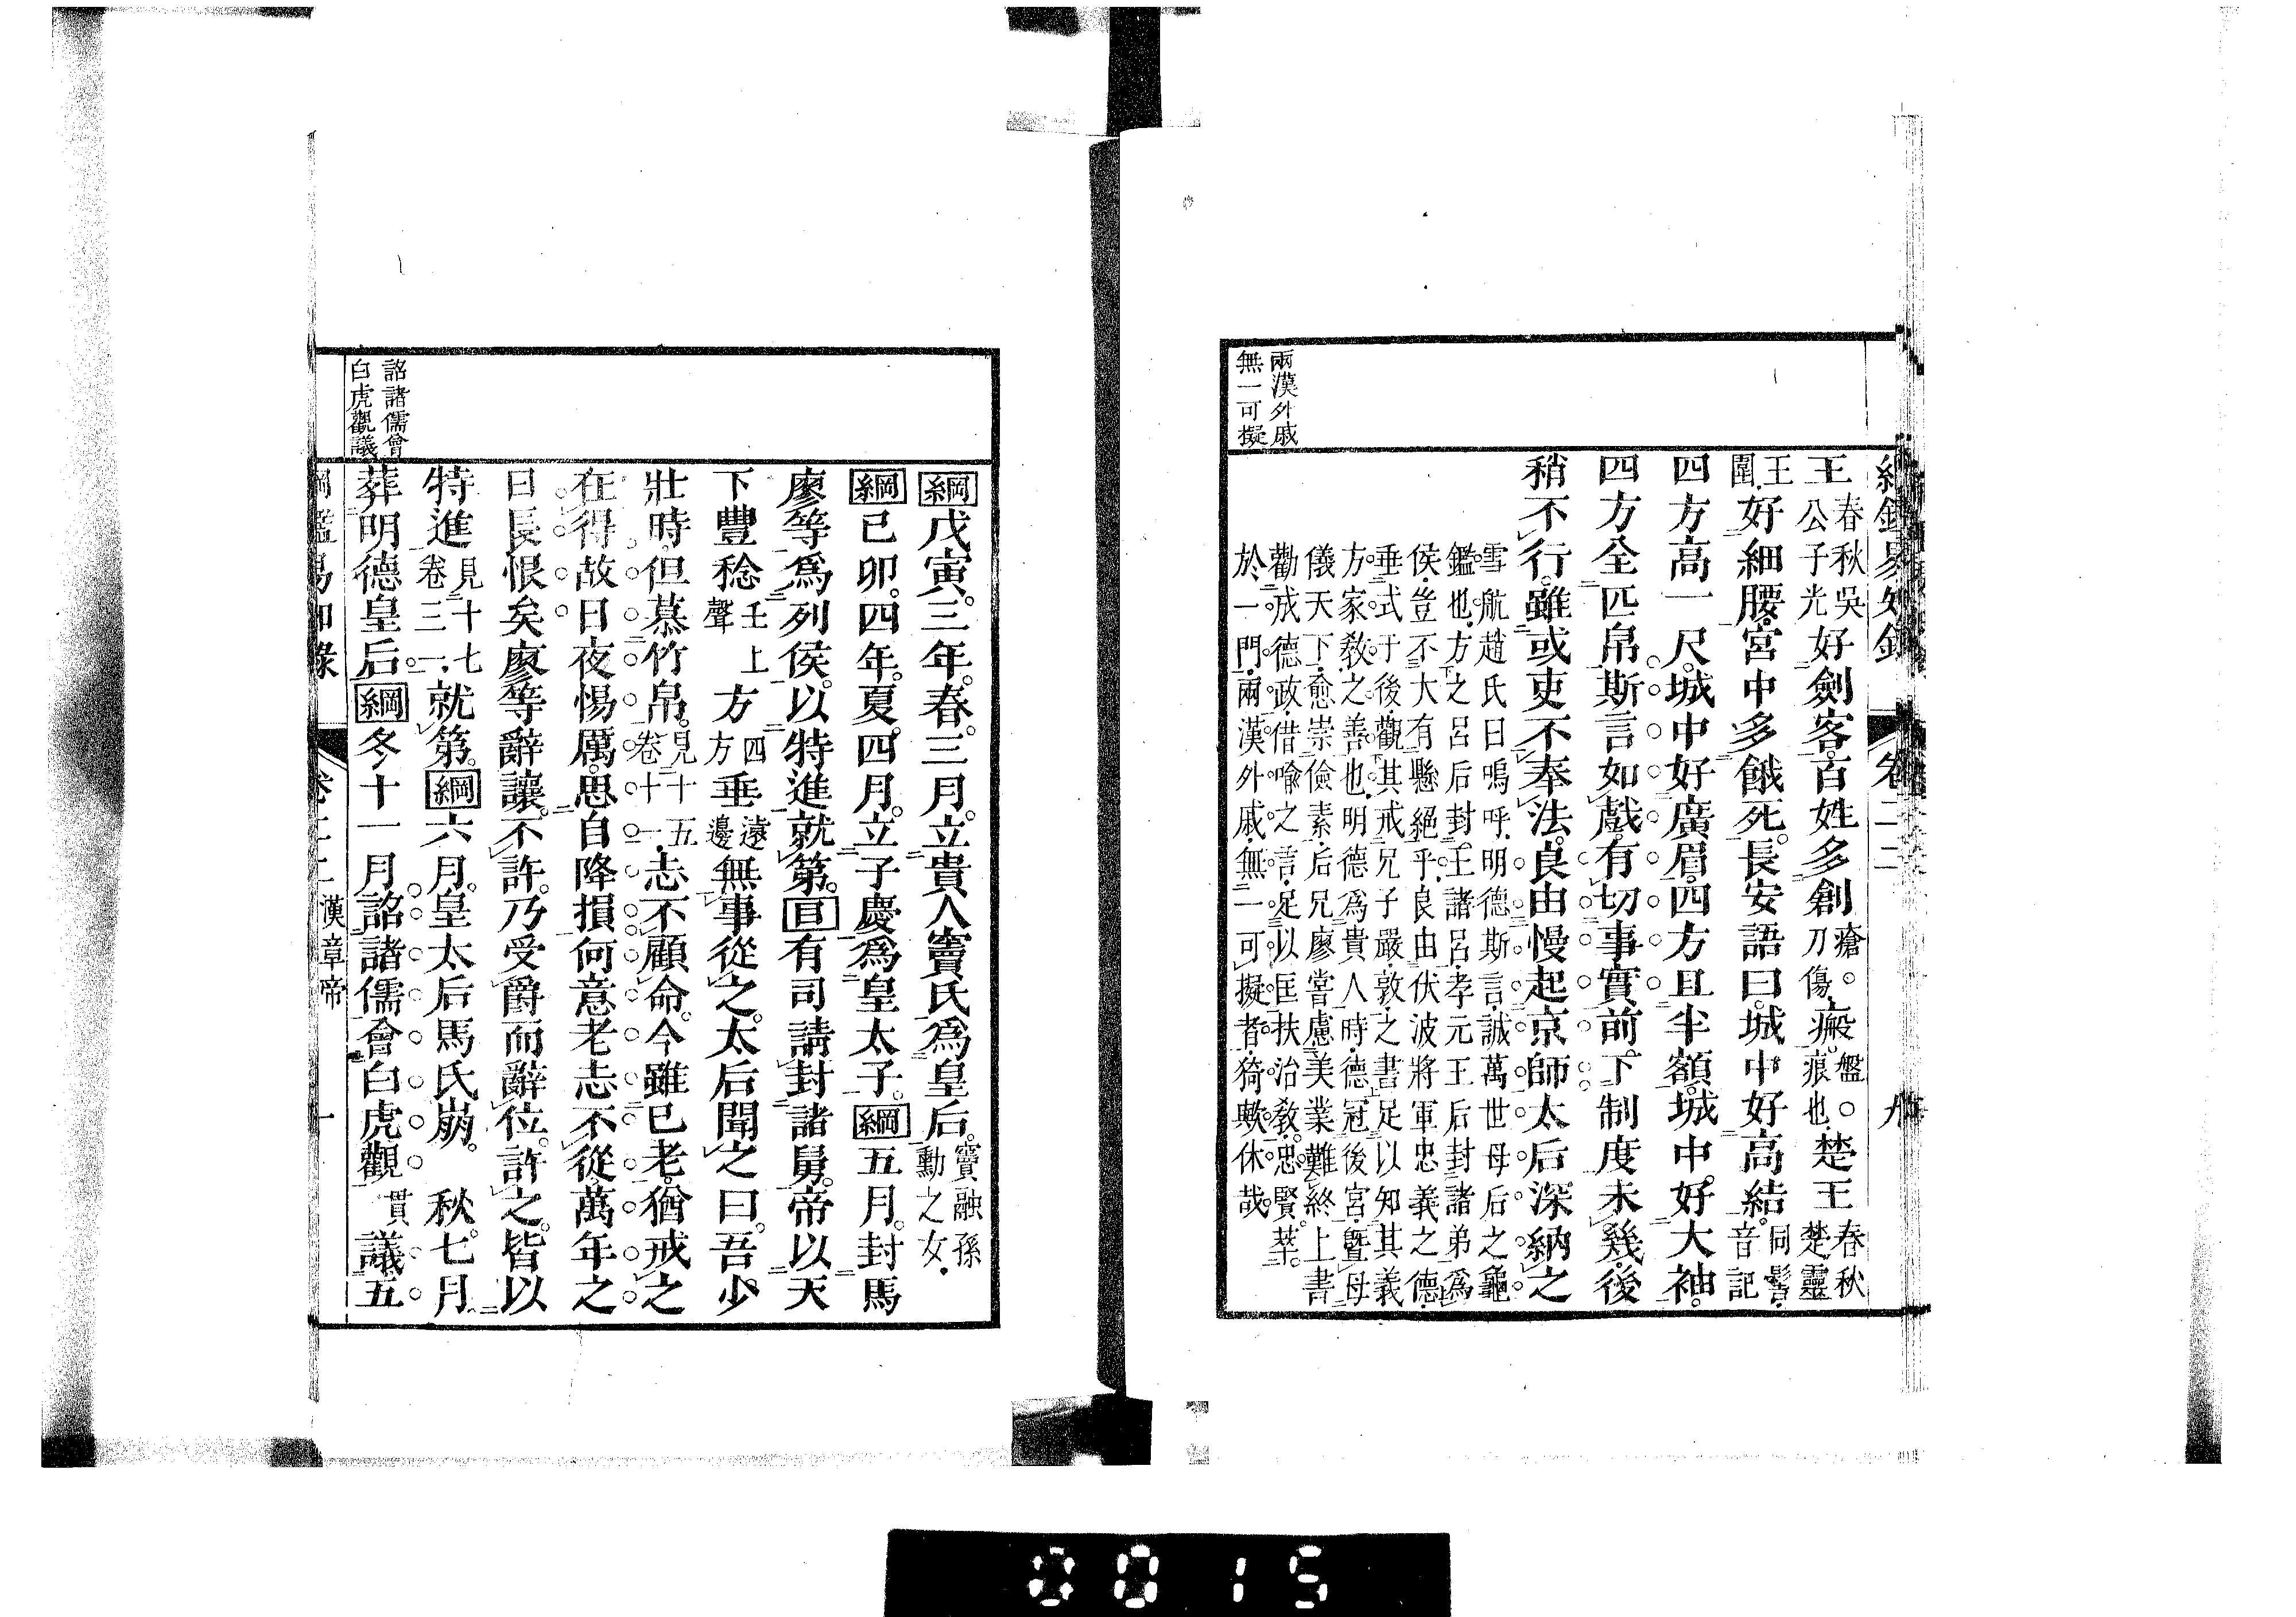 兩漢外戚
無一可擬
王春秋吳公子光好劍客百姓多創瘡。刀傷瘢盤。痕也楚王春秋楚靈
王圍好細腰宮中多餓死長安語曰城中好高結同髻音記
四方高一尺城中好廣眉四方且半額城中好大袖
四方全匹帛斯言如戲有切事實前下制度未幾後
稍不行雖或吏不奉法良由慢起京師太后深納之
雪航趙氏曰嗚呼明德斯言誠萬世母后之龜
鑑也方之呂后封王諸呂孝元王后封諸弟爲
侯豈不大有懸絕乎良由伏波將軍忠義之德
垂式于後觀其戒兄子嚴敦之書足以知其義
方家敎之善也明德爲貴人時德冠後宮曁母
儀天下愈崇儉素后兄廖嘗慮美業難終上書
勸成德政借喻之言足以匡扶治敎忠賢萃
於一門兩漢外戚無一可擬者猗歟休哉
卷二二
九
詔諸儒會
白虎觀議
綱戊寅三年春三月立貴人竇氏爲皇后竇融孫勳之女
綱己卯四年夏四月立子慶爲皇太子綱五月封馬
廖等爲列侯以特進就第目有司請封諸舅帝以天
下豐稔壬上聲方四方垂遠邊無事從之太后聞之曰吾少
壯時但慕竹帛見十五卷十一志不顧命今雖已老猶戒之
在得故日夜惕厲思自降損何意老志不從萬年之
日長恨矣廖等辭讓不許乃受爵而辭位許之皆以
特進見十七卷三一就第綱六月皇太后馬氏崩秋七月
葬明德皇后綱冬十一月詔諸儒會白虎觀貫議五
綱鑑易知錄 卷二二 漢章帝 十
0015